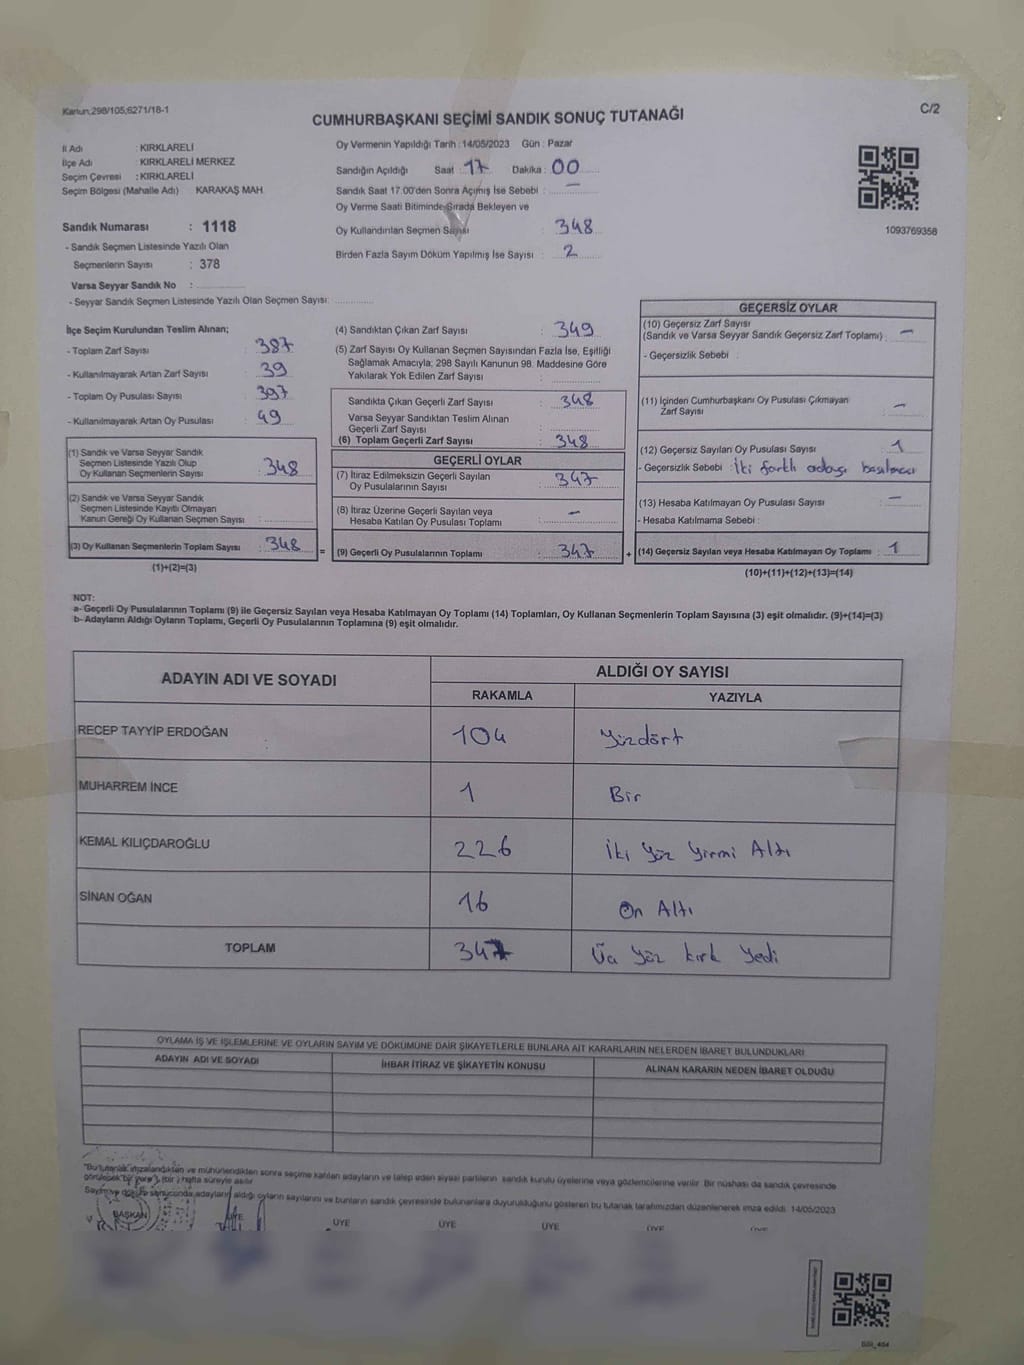 Kanun;298/105;6271/18-1
C/2
CUMHURBAŞKANI SEÇİMİ SANDIK SONUÇ TUTANAĞI
İl Adı : KIRKLARELİ
İlçe Adı : KIRKLARELİ MERKEZ
Seçim Çevresi : KIRKLARELİ
Seçim Bölgesi (Mahalle Adı) : KARAKAŞ MAH.
Sandık Numarası : 1118
- Sandık Seçmen Listesinde Yazılı Olan
Seçmenlerin Sayısı : 378
Varsa Seyyar Sandık No :
- Seyyar Sandık Seçmen Listesinde Yazılı Olan Seçmen Sayısı:
Oy Vermenin Yapıldığı Tarih : 14/05/2023 Gün : Pazar
Sandığın Açıldığı Saat : 17 Dakika : 00
Sandık Saat 17:00'den Sonra Açımış İse Sebebi : —
Oy Verme Saati Bitiminde Sırada Bekleyen ve
Oy Kullandırılan Seçmen Sayısı : 348
Birden Fazla Sayım Döküm Yapılmış İse Sayısı : 2
1093769358
İlçe Seçim Kurulundan Teslim Alınan;
- Toplam Zarf Sayısı : 387
- Kullanılmayarak Artan Zarf Sayısı : 39
- Toplam Oy Pusulası Sayısı : 397
- Kullanılmayarak Artan Oy Pusulası : 49
(1) Sandık ve Varsa Seyyar Sandık
Seçmen Listesinde Yazılı Olup
Oy Kullanan Seçmenlerin Sayısı : 348
(2) Sandık ve Varsa Seyyar Sandık
Seçmen Listesinde Kayıtlı Olmayan
Kanun Gereği Oy Kullanan Seçmen Sayısı :
(3) Oy Kullanan Seçmenlerin Toplam Sayısı : 348
(1)+(2)=(3)
=
(4) Sandıktan Çıkan Zarf Sayısı : 349
(5) Zarf Sayısı Oy Kullanan Seçmen Sayısından Fazla İse, Eşitliği
Sağlamak Amacıyla; 298 Sayılı Kanunun 98. Maddesine Göre
Yakılarak Yok Edilen Zarf Sayısı :
Sandıkta Çıkan Geçerli Zarf Sayısı : 348
Varsa Seyyar Sandıktan Teslim Alınan
Geçerli Zarf Sayısı :
(6) Toplam Geçerli Zarf Sayısı : 348
GEÇERLİ OYLAR
(7) İtiraz Edilmeksizin Geçerli Sayılan
Oy Pusulalarının Sayısı : 347
(8) İtiraz Üzerine Geçerli Sayılan veya
Hesaba Katılan Oy Pusulaları Toplamı : —
(9) Geçerli Oy Pusulalarının Toplamı : 347
+
GEÇERSİZ OYLAR
(10) Geçersiz Zarf Sayısı
(Sandık ve Varsa Seyyar Sandık Geçersiz Zarf Toplamı) : —
- Geçersizlik Sebebi :
(11) İçinden Cumhurbaşkanı Oy Pusulası Çıkmayan
Zarf Sayısı : —
(12) Geçersiz Sayılan Oy Pusulası Sayısı : 1
- Geçersizlik Sebebi : İki farklı adaya basılması
(13) Hesaba Katılmayan Oy Pusulası Sayısı : —
- Hesaba Katılmama Sebebi :
(14) Geçersiz Sayılan veya Hesaba Katılmayan Oy Toplamı : 1
(10)+(11)+(12)+(13)=(14)
NOT:
a- Geçerli Oy Pusulalarının Toplamı (9) ile Geçersiz Sayılan veya Hesaba Katılmayan Oy Toplamı (14) Toplamları, Oy Kullanan Seçmenlerin Toplam Sayısına (3) eşit olmalıdır. (9)+(14)=(3)
b- Adayların Aldığı Oyların Toplamı, Geçerli Oy Pusulalarının Toplamına (9) eşit olmalıdır.
ADAYIN ADI VE SOYADI
ALDIĞI OY SAYISI
RAKAMLA YAZIYLA
RECEP TAYYİP ERDOĞAN 104 Yüzdört
MUHARREM İNCE 1 Bir
KEMAL KILIÇDAROĞLU 226 İki Yüz Yirmi Altı
SİNAN OĞAN 16 On Altı
TOPLAM 347 Üç Yüz Kırk Yedi
OYLAMA İŞ VE İŞLEMLERİNE VE OYLARIN SAYIM VE DÖKÜMÜNE DAİR ŞİKAYETLERLE BUNLARA AİT KARARLARIN NELERDEN İBARET BULUNDUKLARI
ADAYIN ADI VE SOYADI İHBAR İTİRAZ VE ŞİKAYETİN KONUSU ALINAN KARARIN NEDEN İBARET OLDUĞU
"Bu tutanak imzalandıktan ve mühürlendikten sonra seçime katılan adayların ve talep eden siyasi partilerin sandık kurulu üyelerine veya gözlemcilerine verilir. Bir nüshası da sandık çevresinde
görülebilir bir yere 1 (bir) hafta süreyle asılır
Sayım ve döküm sonucunda adayların aldığı oyların sayılarını ve bunların sandık çevresinde bulunanlara duyurulduğunu gösteren bu tutanak tarafımızdan düzenlenerek imza edildi. 14/05/2023
BAŞKAN ÜYE ÜYE ÜYE ÜYE ÜYE ÜYE